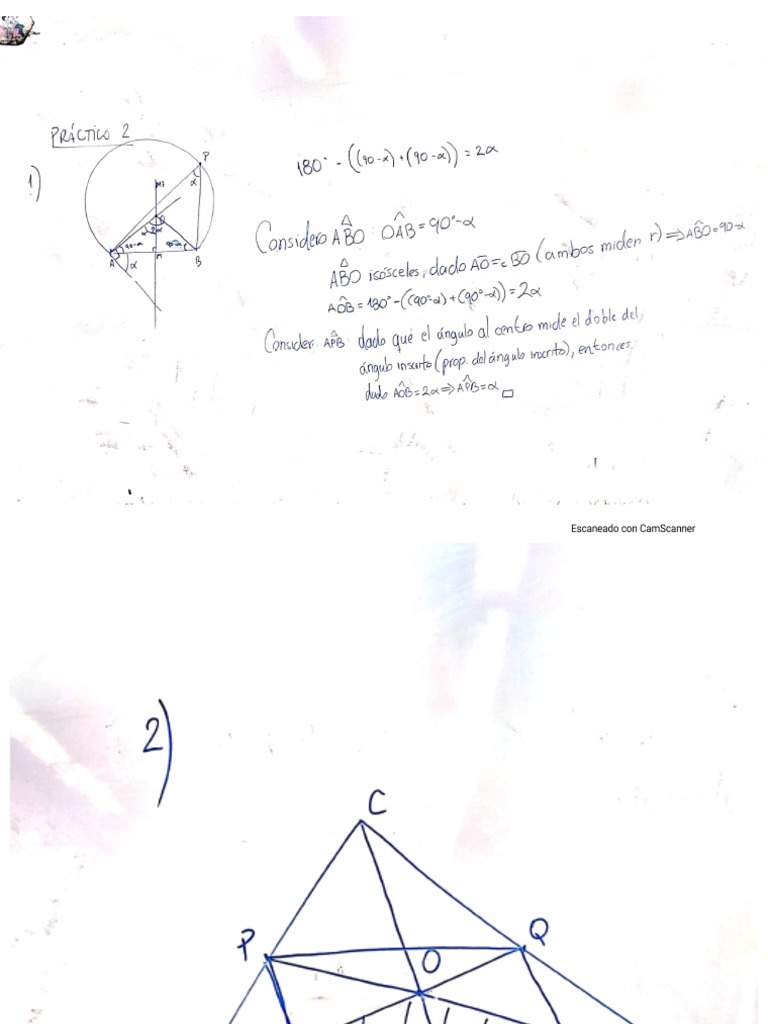 PRÁCTICO 2
1)
180° - ((90-α)+(90-α)) = 2α
Considero ABO OAB = 90°-α
ABO isósceles, dado AO =c BO (ambos miden r) ⇒ ABO = 90-α
AOB = 180° - ((90°-α)+(90°-α)) = 2α
Consider. APB dado que el ángulo al centro mide el doble del
ángulo inscrito (prop. del ángulo inscrito), entonces
dado AOB = 2α ⇒ APB = α □
P
α
O
α
2α
90-α
A
α
m
B
Escaneado con CamScanner
2)
C
P
Q
O